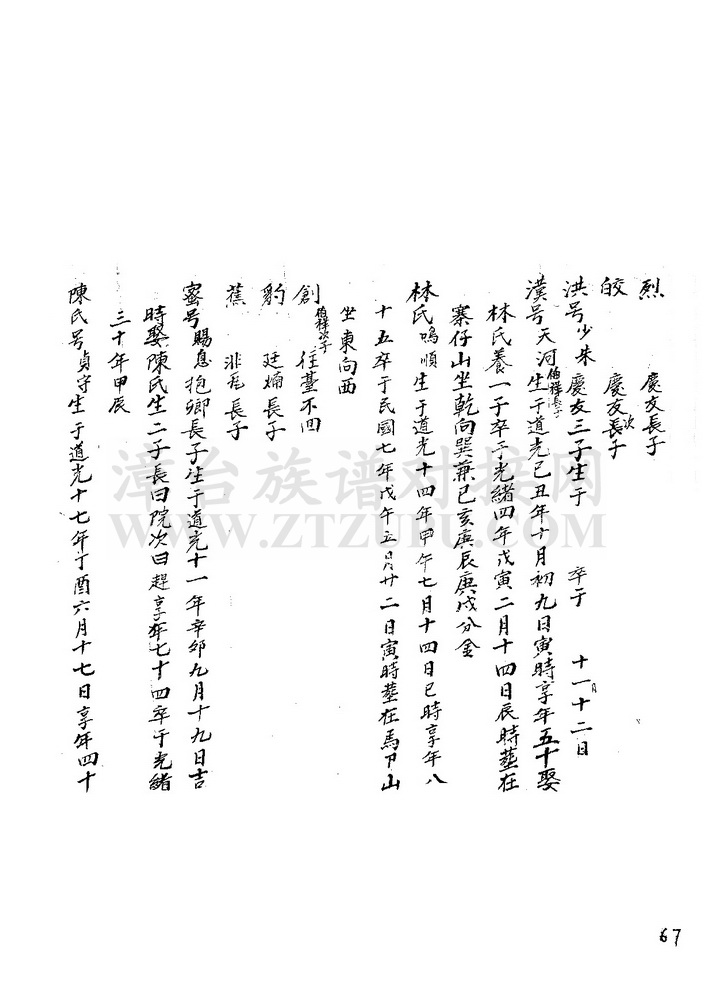 烈 慶友長子
皎 慶友長次子
洪号少朱 慶友三子生于 卒于 十一月十二日
漢号天河伯禄長子生于道光己丑年十月初九日寅時享年五十娶
林氏養一子卒于光緒四年戊寅二月十四日辰時塟在
寨仔山坐乾向巽兼巳亥庚辰庚戌分金
林氏鳴順生于道光十四年甲午七月十四日巳時享年八
十五卒于民國七年戊午五月廿二日寅時塟在馬下山
坐東向西
創伯禄次子 往臺不回
豹 廷燏長子
蕉 長子
蜜号賜息抱卿長子生于道光十一年辛卯九月十九日吉
時娶陳氏生二子長曰院次曰趕享年七十四卒于光緒
三十年甲辰
陳氏号貞守生于道光十七年丁酉六月十七日享年四十
67
漳台族谱对接网
WWW.ZTZUPU.COM